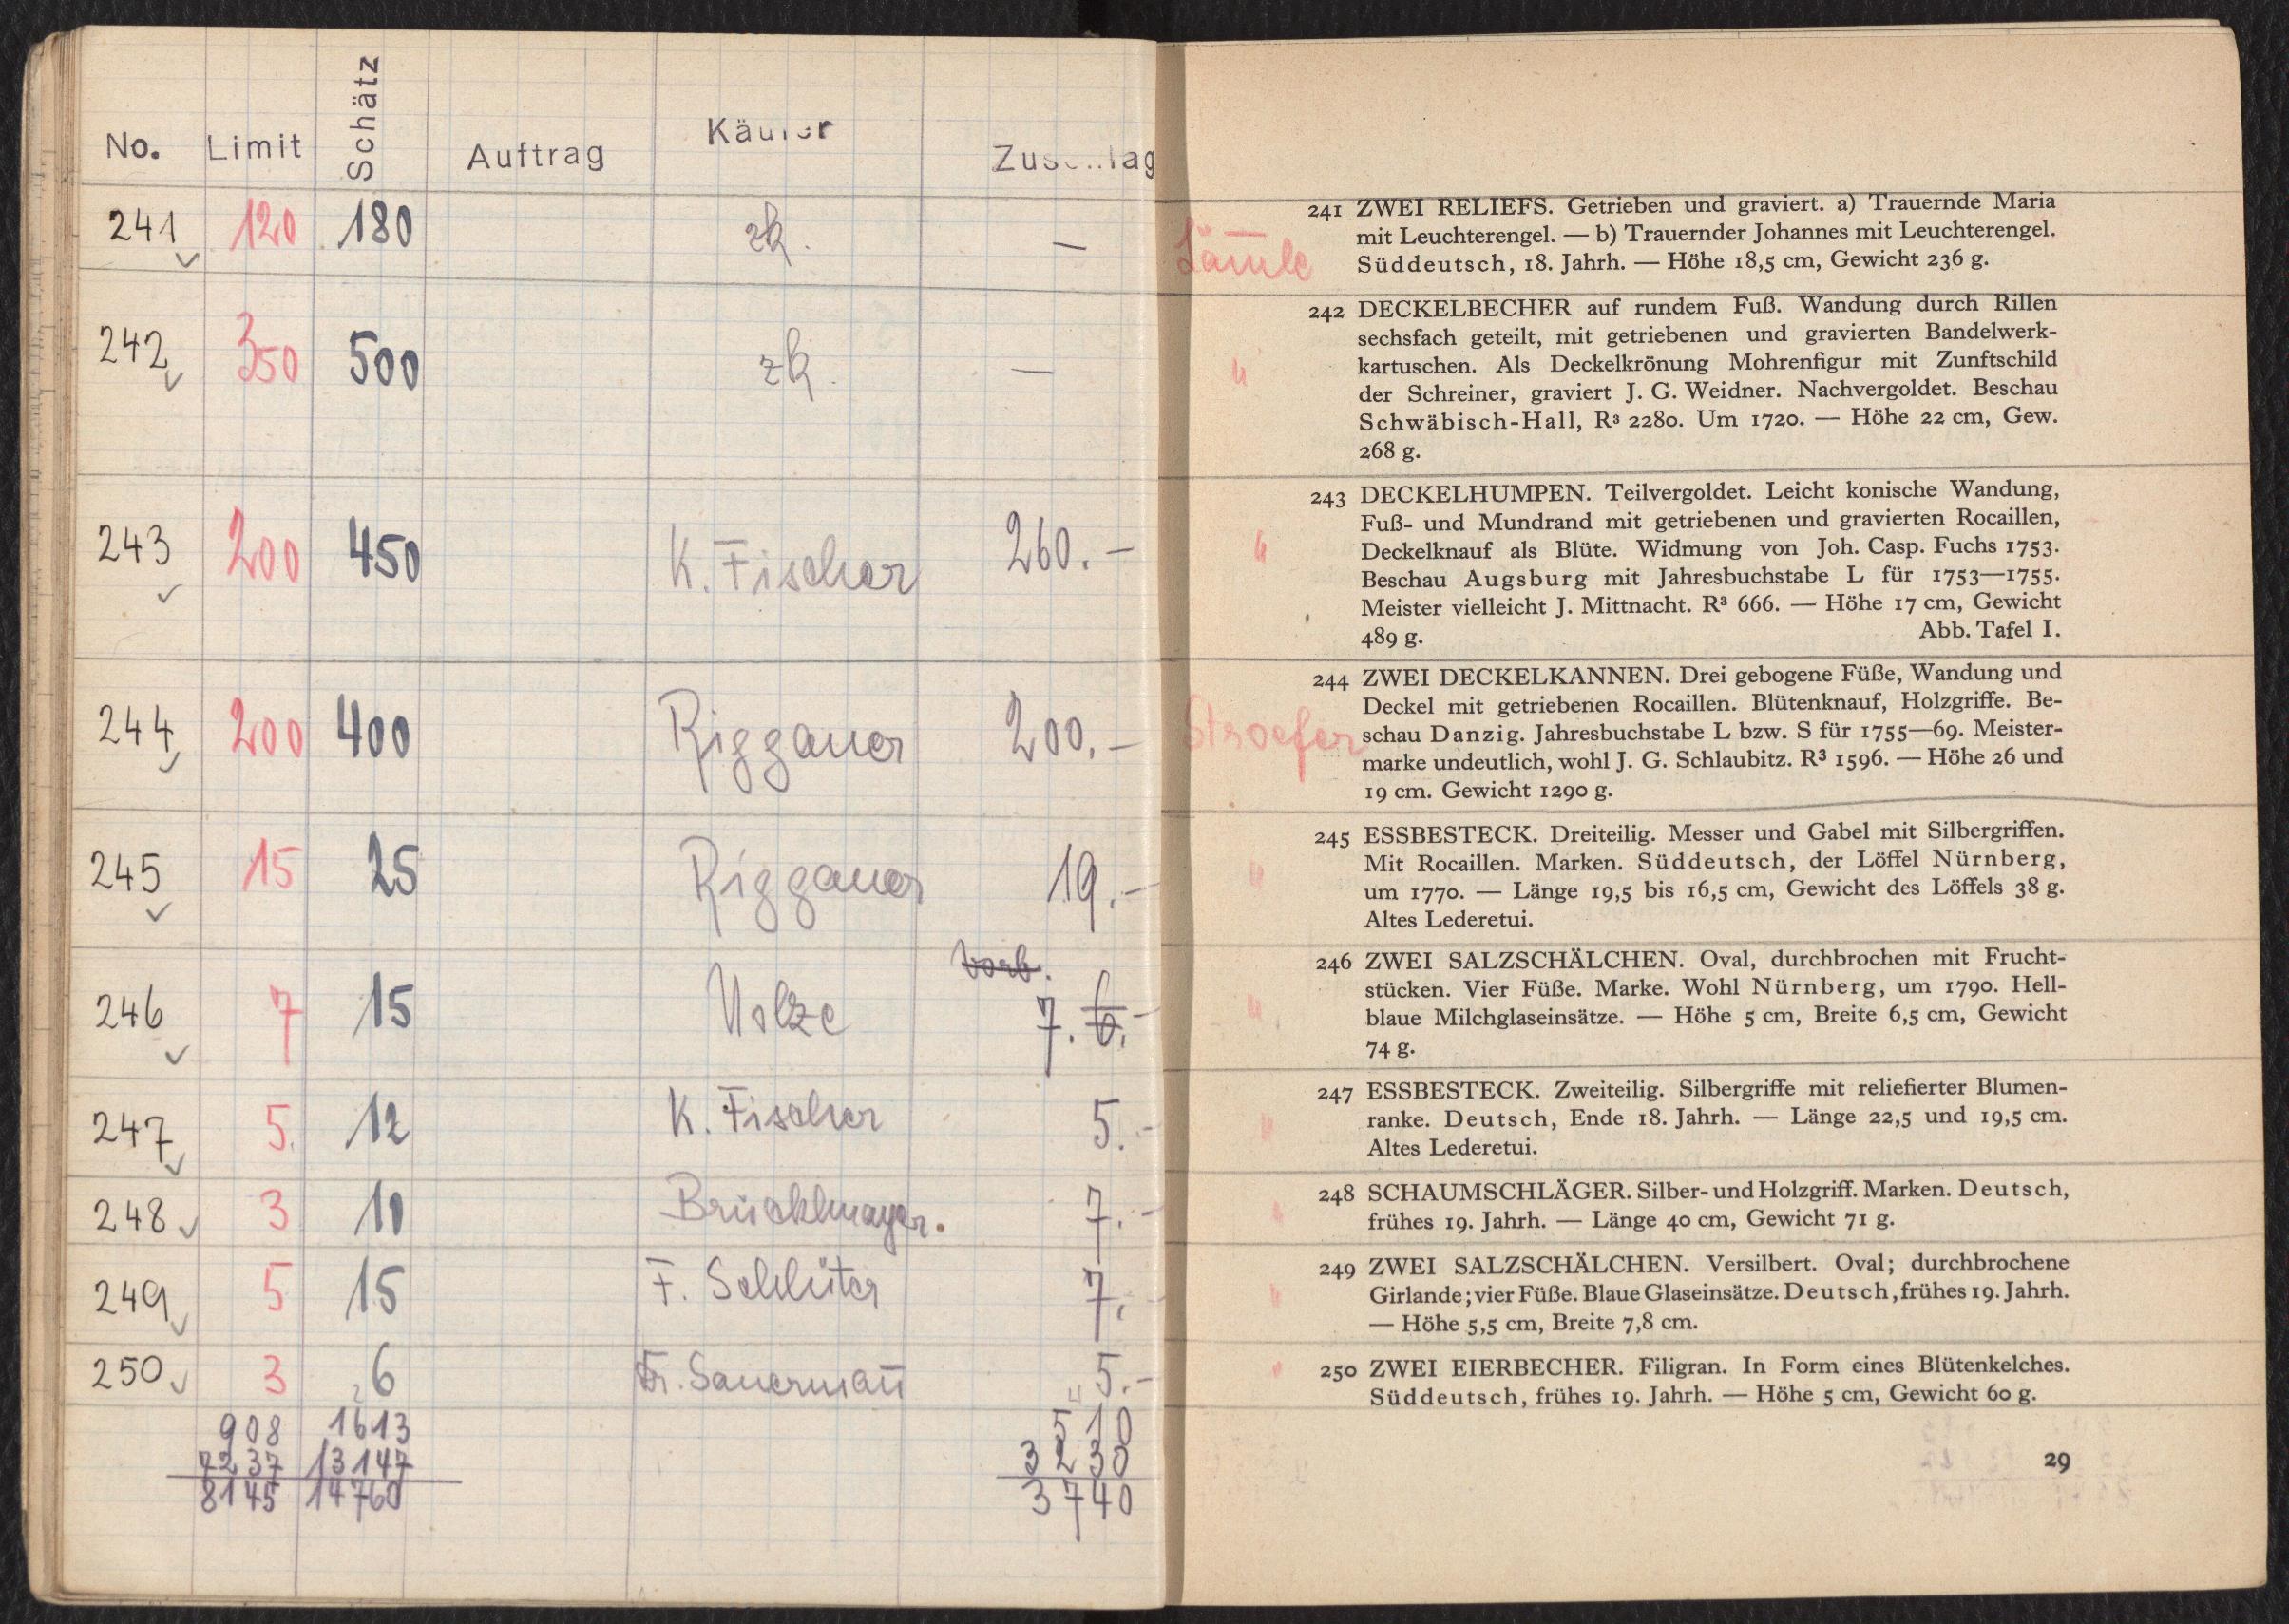 No. Limit Schätz Auftrag Käufer Zuschlag
241 120 180 zk. —
242 350 500 zk. —
243 200 450 K. Fischer 260.—
244 200 400 Riggauer 200.—
245 15 25 Riggauer 19.—
vorb.
246 7 15 7. 6.—
247 5. 12 K. Fischer 5.—
248 3 10 Brücklmayer. 7.—
249 5 15 F. Schlüter 7.—
250 3 6 Fr. Sauermañ 5.—
908 1613 510
7237 13147 3230
8145 14760 3740
241 ZWEI RELIEFS. Getrieben und graviert. a) Trauernde Maria
mit Leuchterengel. — b) Trauernder Johannes mit Leuchterengel.
Süddeutsch, 18. Jahrh. — Höhe 18,5 cm, Gewicht 236 g.
242 DECKELBECHER auf rundem Fuß. Wandung durch Rillen
sechsfach geteilt, mit getriebenen und gravierten Bandelwerk-
kartuschen. Als Deckelkrönung Mohrenfigur mit Zunftschild
der Schreiner, graviert J. G. Weidner. Nachvergoldet. Beschau
Schwäbisch-Hall, R³ 2280. Um 1720. — Höhe 22 cm, Gew.
268 g.
243 DECKELHUMPEN. Teilvergoldet. Leicht konische Wandung,
Fuß- und Mundrand mit getriebenen und gravierten Rocaillen,
Deckelknauf als Blüte. Widmung von Joh. Casp. Fuchs 1753.
Beschau Augsburg mit Jahresbuchstabe L für 1753—1755.
Meister vielleicht J. Mittnacht. R³ 666. — Höhe 17 cm, Gewicht
489 g. Abb. Tafel I.
Stroefer
244 ZWEI DECKELKANNEN. Drei gebogene Füße, Wandung und
Deckel mit getriebenen Rocaillen. Blütenknauf, Holzgriffe. Be-
schau Danzig. Jahresbuchstabe L bzw. S für 1755—69. Meister-
marke undeutlich, wohl J. G. Schlaubitz. R³ 1596. — Höhe 26 und
19 cm. Gewicht 1290 g.
245 ESSBESTECK. Dreiteilig. Messer und Gabel mit Silbergriffen.
Mit Rocaillen. Marken. Süddeutsch, der Löffel Nürnberg,
um 1770. — Länge 19,5 bis 16,5 cm, Gewicht des Löffels 38 g.
Altes Lederetui.
246 ZWEI SALZSCHÄLCHEN. Oval, durchbrochen mit Frucht-
stücken. Vier Füße. Marke. Wohl Nürnberg, um 1790. Hell-
blaue Milchglaseinsätze. — Höhe 5 cm, Breite 6,5 cm, Gewicht
74 g.
247 ESSBESTECK. Zweiteilig. Silbergriffe mit reliefierter Blumen-
ranke. Deutsch, Ende 18. Jahrh. — Länge 22,5 und 19,5 cm.
Altes Lederetui.
248 SCHAUMSCHLÄGER. Silber- und Holzgriff. Marken. Deutsch,
frühes 19. Jahrh. — Länge 40 cm, Gewicht 71 g.
249 ZWEI SALZSCHÄLCHEN. Versilbert. Oval; durchbrochene
Girlande; vier Füße. Blaue Glaseinsätze. Deutsch, frühes 19. Jahrh.
— Höhe 5,5 cm, Breite 7,8 cm.
250 ZWEI EIERBECHER. Filigran. In Form eines Blütenkelches.
Süddeutsch, frühes 19. Jahrh. — Höhe 5 cm, Gewicht 60 g.
29